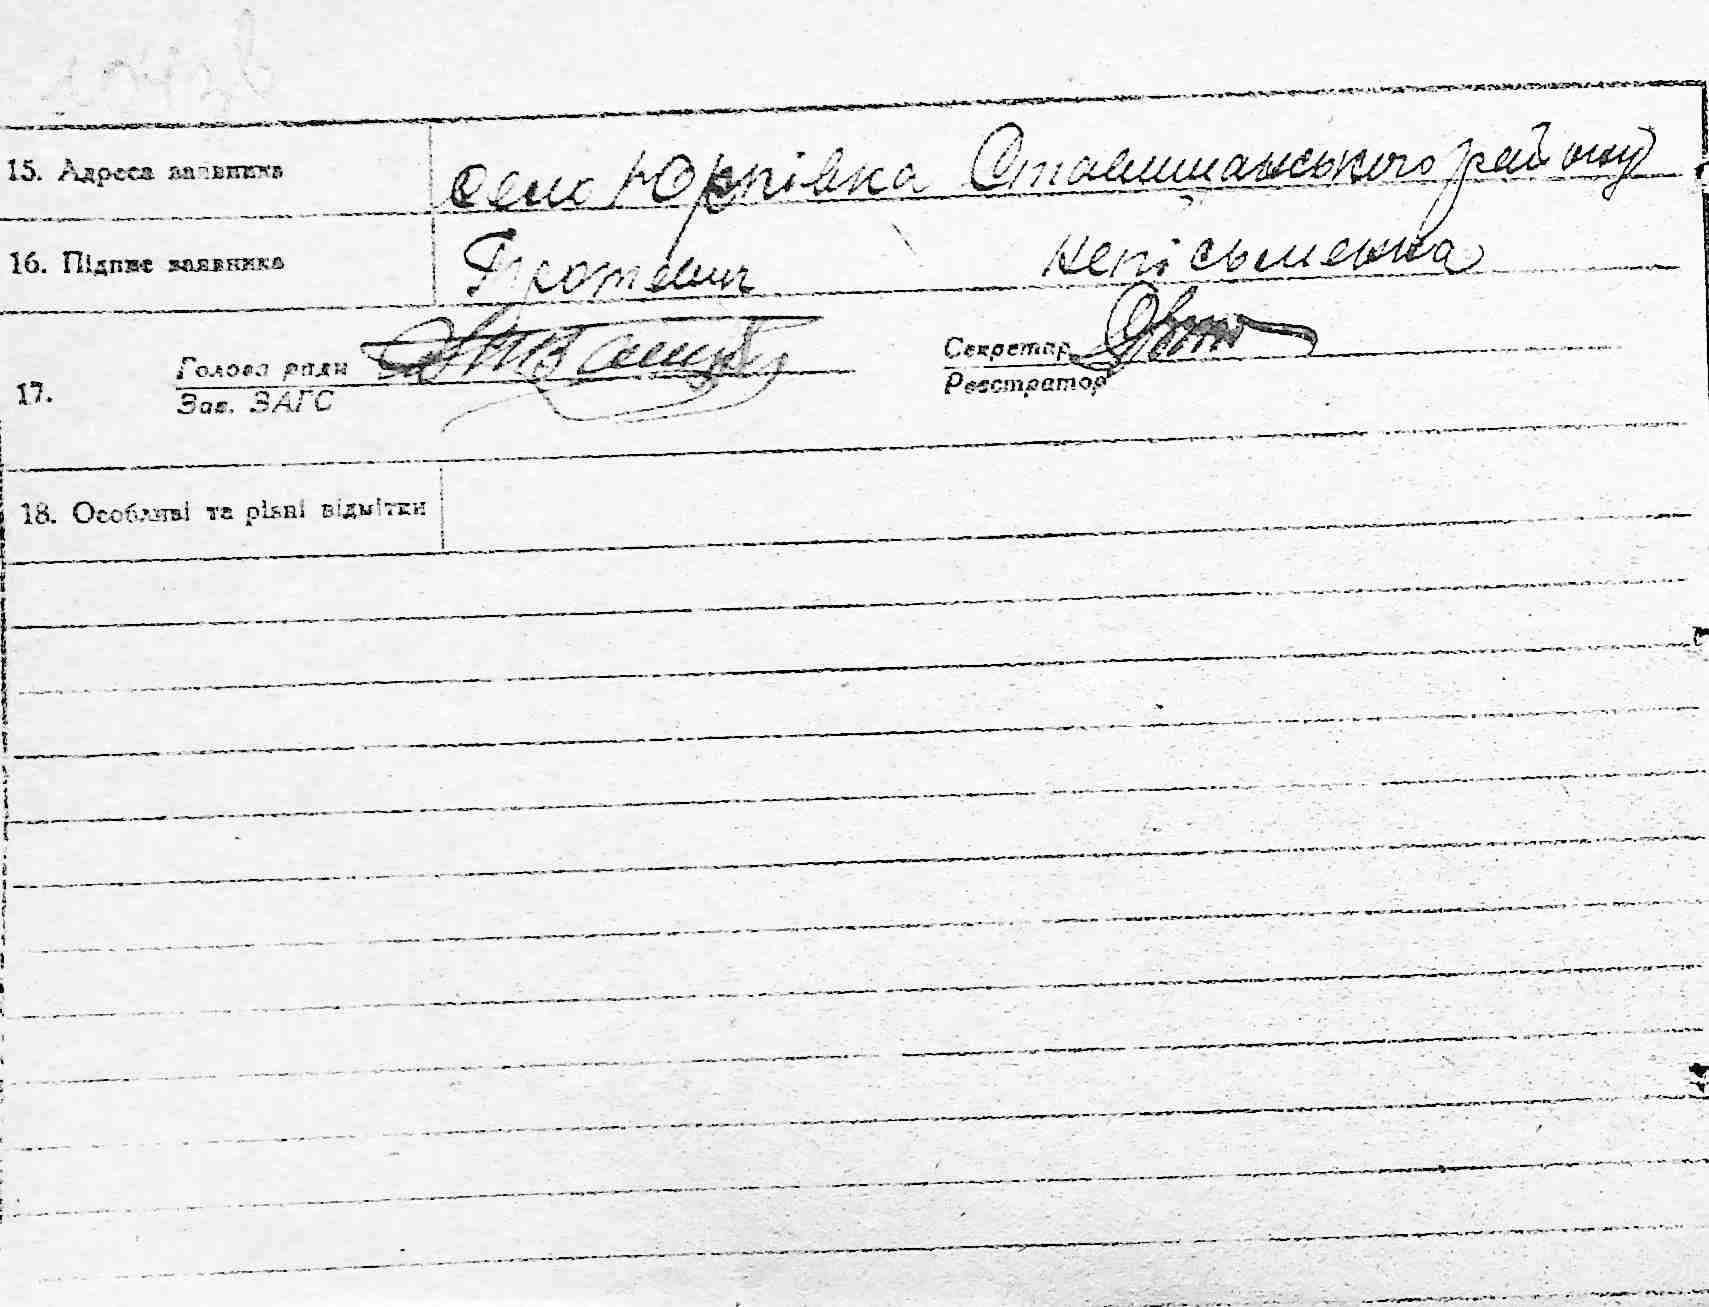 15. Адреса заявника село Юрпівка Ставищанського району
16. Підпис заявника неписьменна
17. Голова ради Секретар
Зав. ЗАГС Реєстратор
18. Особливі та різні відмітки